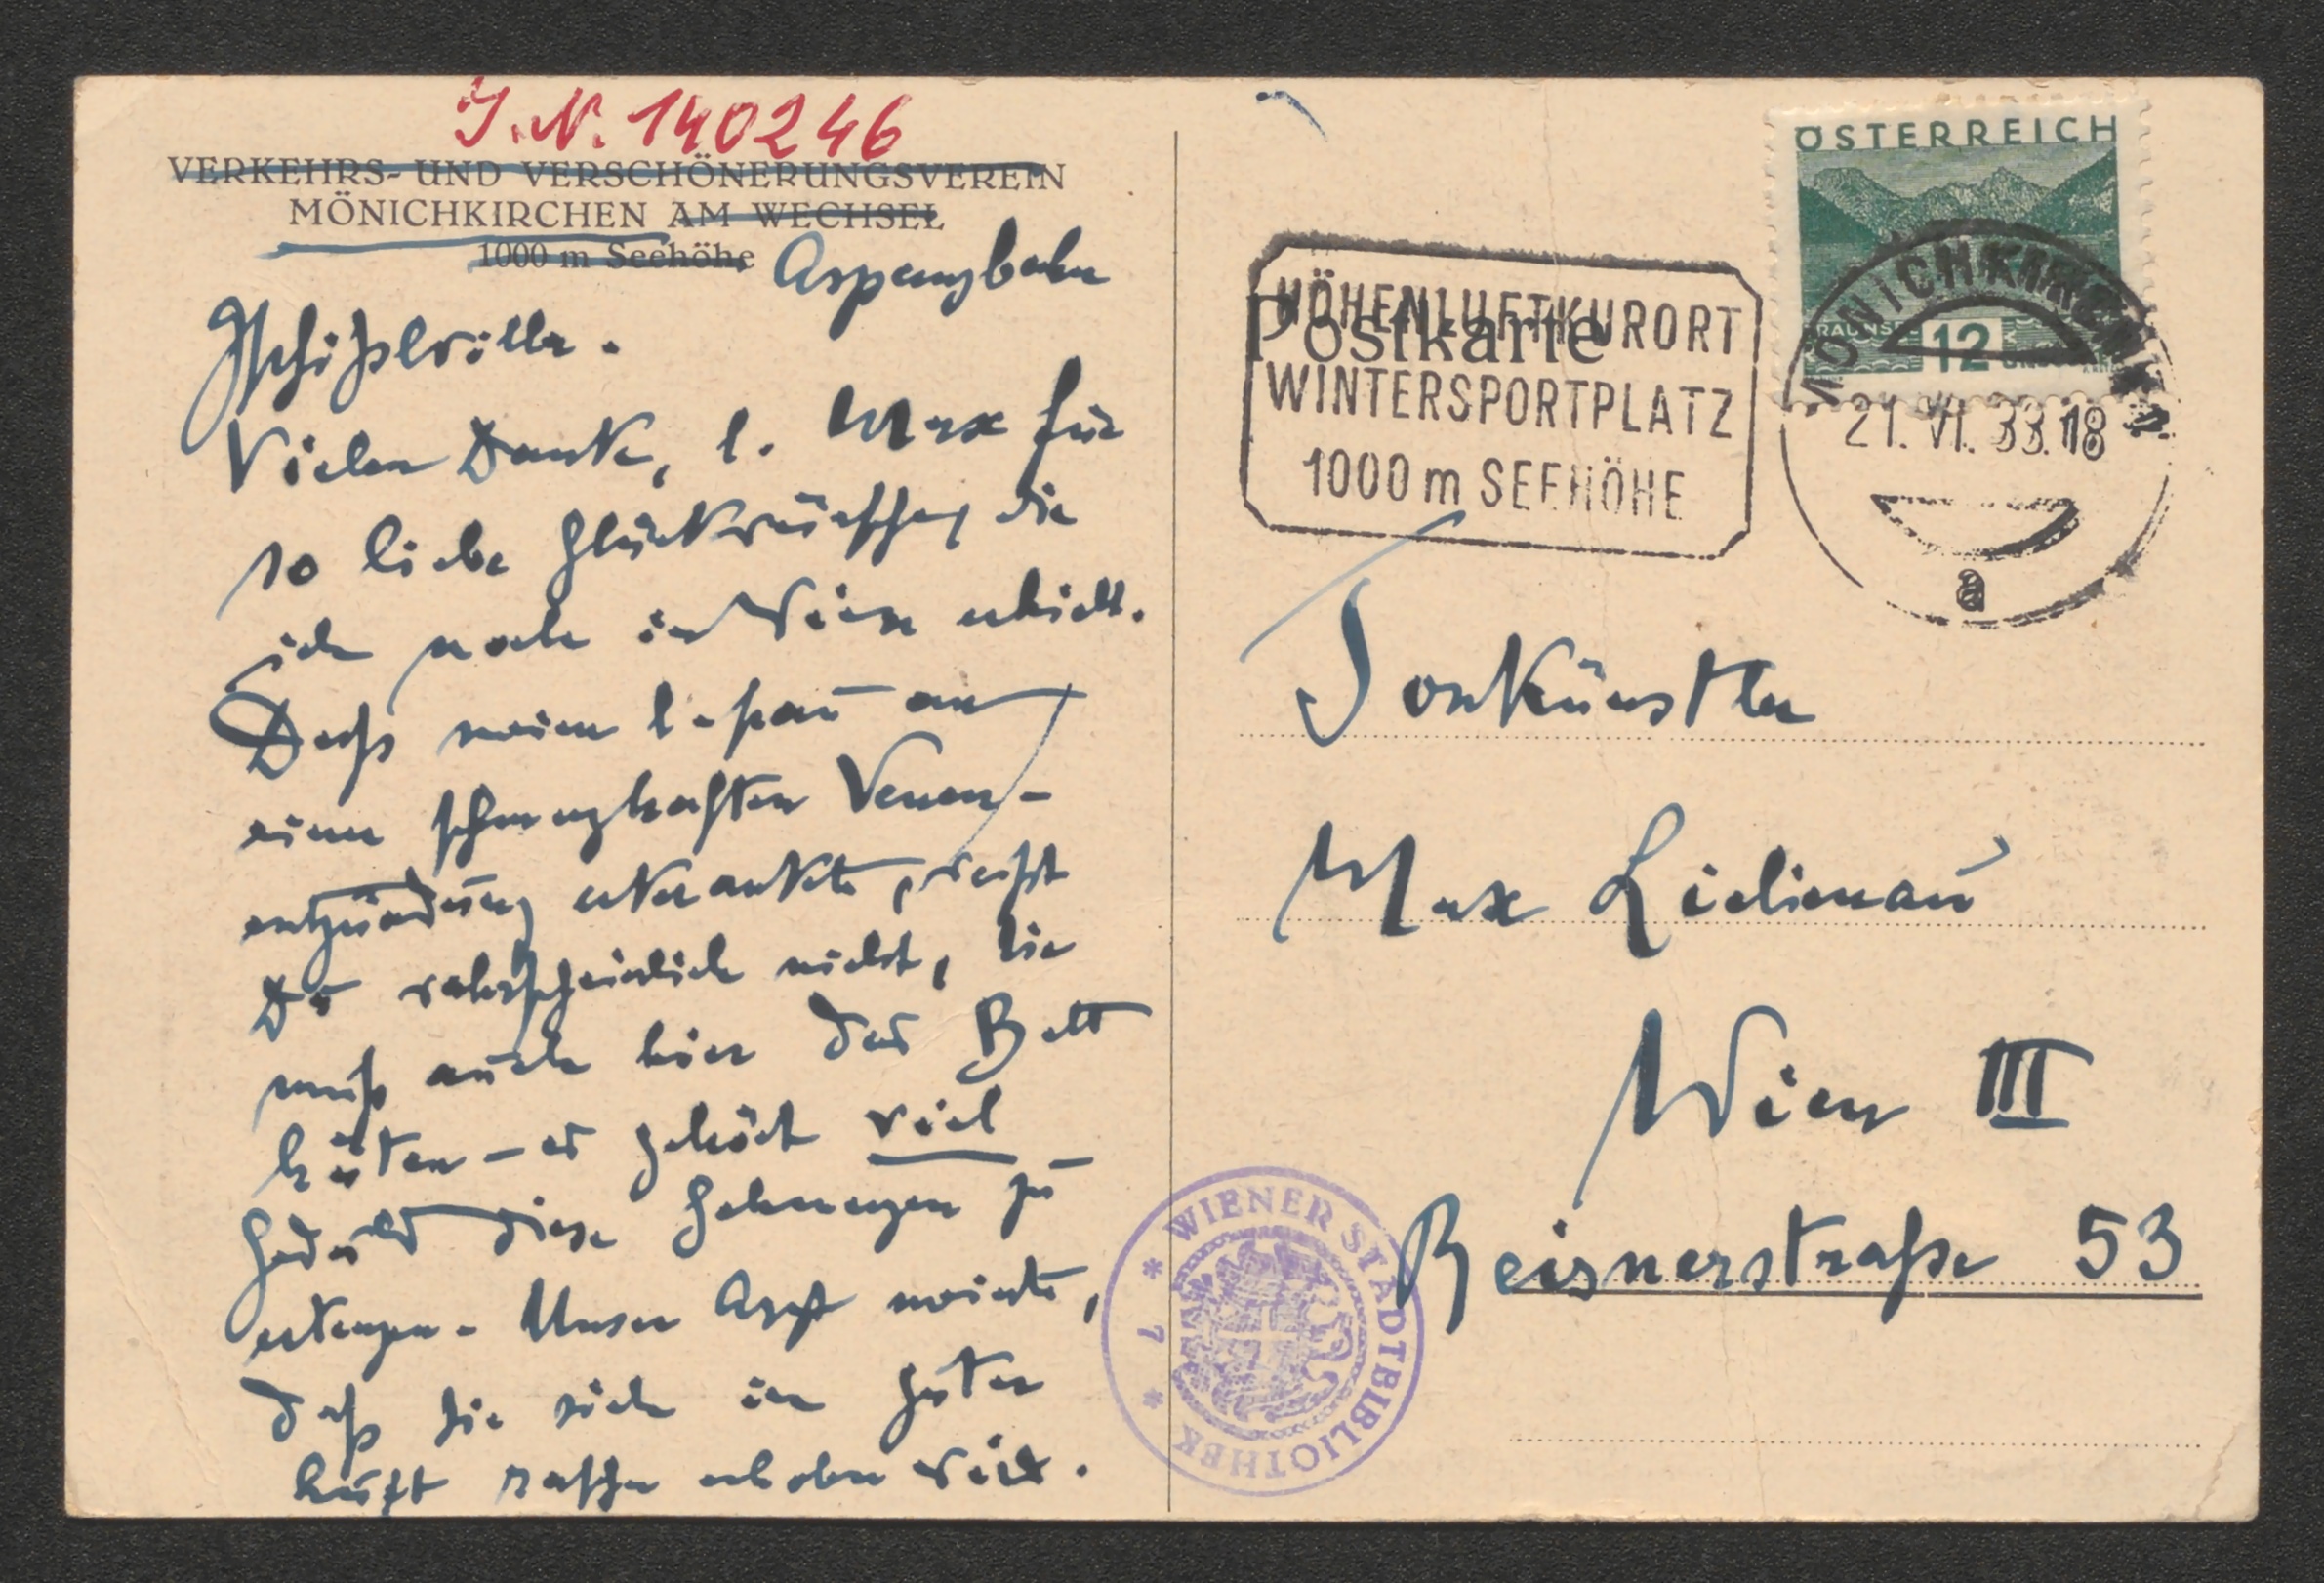 J.N. 140246
VERKEHRS- UND VERSCHÖNERUNGSVEREIN
MÖNICHKIRCHEN AM WECHSEL
1000 m Seehöhe Aspangbahn
Vielen Dank, l. Max für
so liebe Glückwünsche, die
ich noch in Wien erhielt.
Dass meine l. Frau an
einer schmerzhaften Venen-
entzündung erkrankte, weißt
Du wahrscheinlich nicht, sie
muß auch hier das Bett
hüten – es gehört viel
Geduld diese Schmerzen zu
ertragen. Unser Arzt meinte,
daß sie sich in guter
Luft rascher erholen wird.
ÖSTERREICH
12
MÖNICHKIRCHEN
21. VI. 33. 18
a
Postkarte
HÖHENLUFTKURORT
WINTERSPORTPLATZ
1000 m SEEHÖHE
Tonkünstler
Max Lielienau
Wien III
Reisnerstraße 53
WIENER STADTBIBLIOTHEK
* 7 *